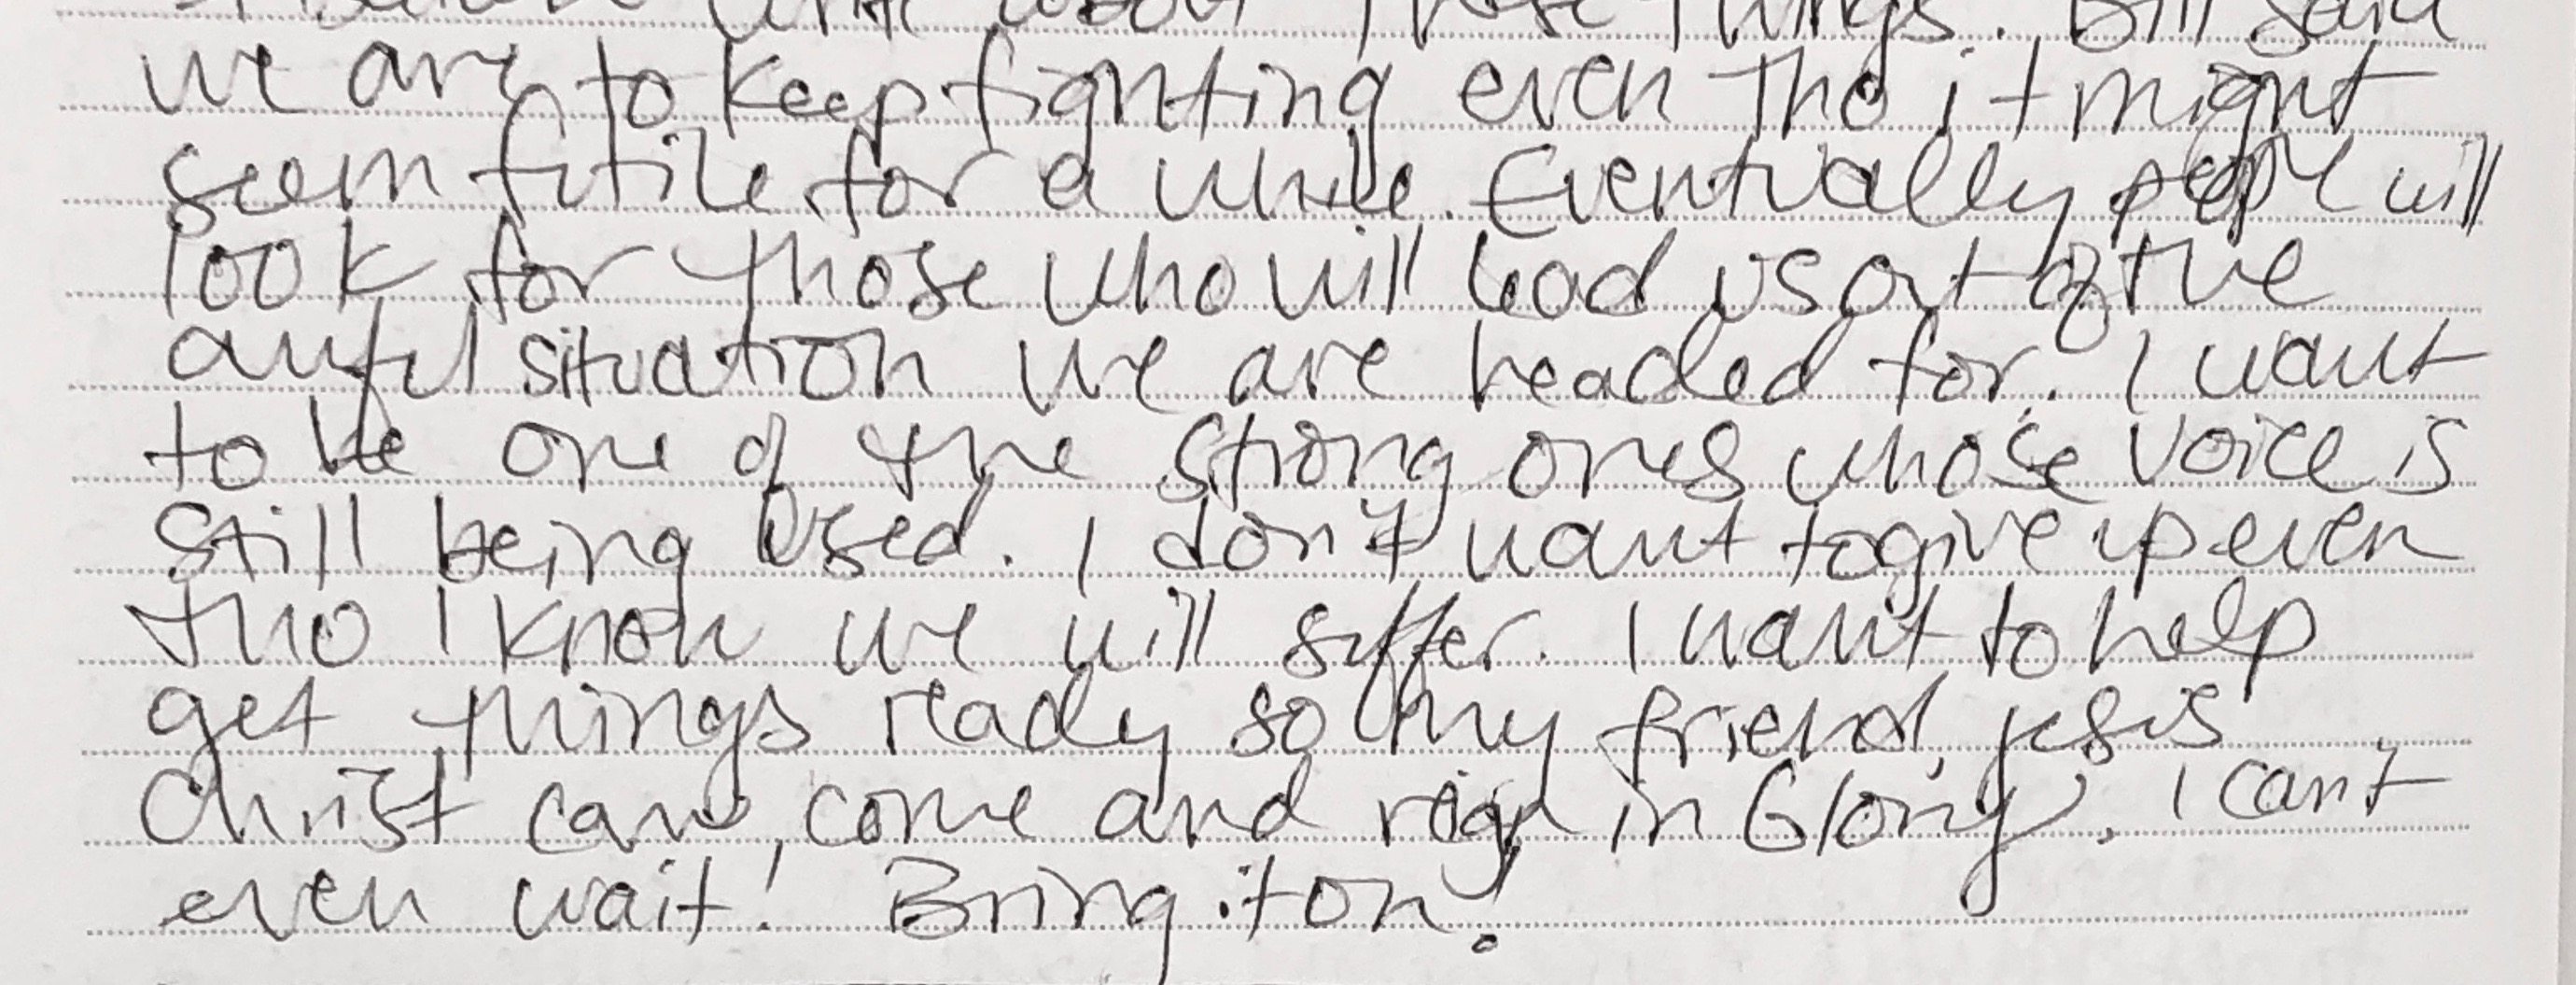 about these things. Bill said
we are to keep fighting even tho it might
seem futile for a while. Eventually people will
look for those who will lead us out of the
awful situation we are headed for. I want
to be one of the strong ones whose voice is
still being used. I don't want to give up even
tho I know we will suffer. I want to help
get things ready so my friend, jesus
Christ can, come and reign in Glory. I can't
even wait! Bring it on!